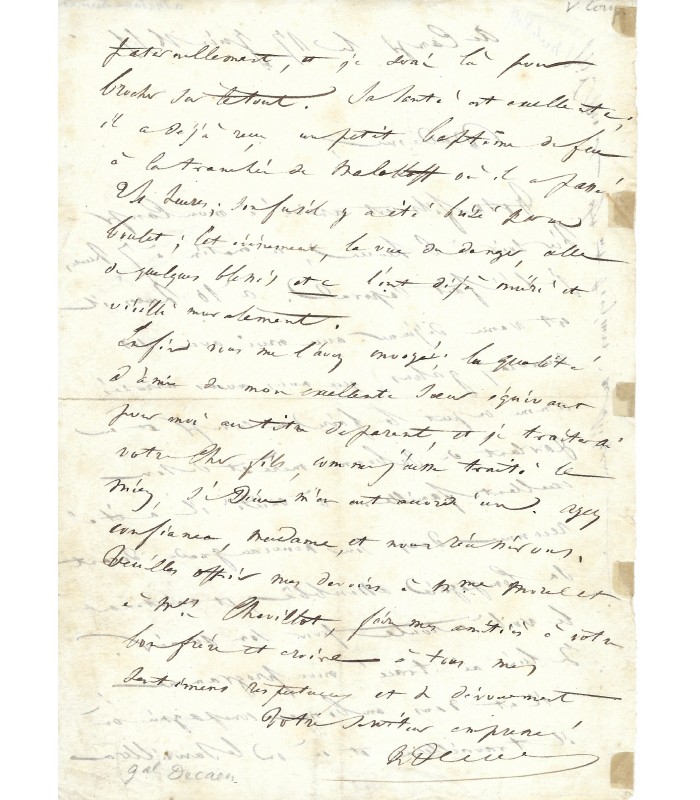 paternellement, et je serai là pour
brocher sur le tout. Sa santé est excellente;
il a déjà reçu un petit baptême de feu
à la tranchée de Malakoff où il a passé
24 heures; son fusil y a été brisé par un
boulet; cet événement, la vue du danger, celle
de quelques blessés etc l'ont déjà mûri et
vieilli moralement.
Enfin vous me l'avez envoyé: la qualité
d'amie de mon excellente soeur équivaut
pour moi au titre de parent, et je traiterai
votre cher fils, comme j'eusse traité le
mien, si Dieu m'en eut accordé un. Ayez
confiance, madame, et nous réussirons.
Veuillez offrir mes devoirs à mme Morel et
à Chevillot, faire mes amitiés à votre
bon frère et croire à tous mes
sentimens respectueux et de dévouement
Votre serviteur empressé
Decaen
gal Decaen